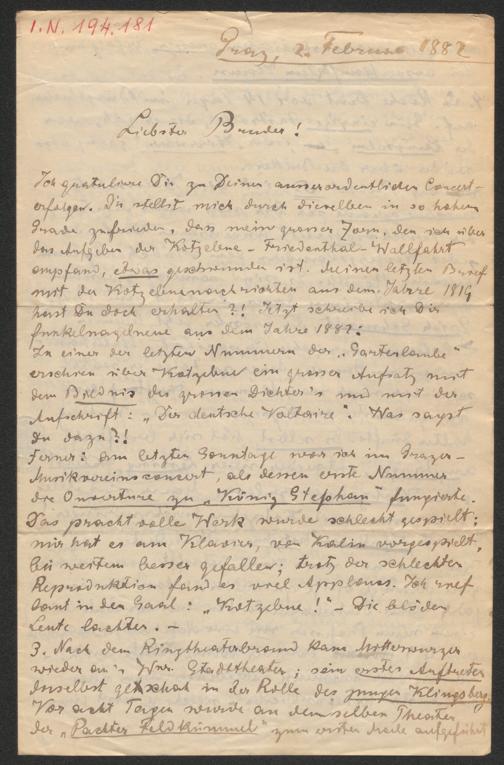 I.N. 194.181
Graz, 2. Februar 1882
Liebster Bruder!
Ich gratulire Dir zu Deinen ausserordentlichen Concert-
erfolgen. Du stellst mich durch dieselben in so hohem
Grade zufrieden, dass mein grosser Zorn, den ich über
das Aufgeben der Kotzebue-Friedenthal-Wallfahrt
empfand, etwas geschwunden ist. Meinen letzten Brief
mit den Kotzebuenachrichten aus dem Jahre 1819
hast Du doch erhalten?! Jetzt schreibe ich Dir
funkelnagelneue aus dem Jahre 1882:
In einer der letzten Nummern der „Gartenlaube"
erschien über Kotzebue ein grosser Aufsatz mit
dem Bildnis des grossen Dichter's und mit der
Aufschrift: „Der deutsche Voltaire". Was sagst
Du dazu?!
Ferner: am letzten Sonntage war ich im Grazer-
Musikvereinsconcert, als dessen erste Nummer
die Ouverture zu „König Stephan" fungierte.
Das prachtvolle Werk wurde schlecht gespielt;
mir hat es am Klavier, von Kalin vorgespielt,
bei weitem besser gefallen; trotz der schlechten
Reproduktion fand es viel Applaus. Ich rief
laut in den Saal: „Kotzebue!" – Die blöden
Leute lachten. –
3. Nach dem Ringtheaterbrand kam Mitterwurzer
wieder an's Wnr. Stadttheater; sein erstes Auftreten
daselbst geschah in der Rolle des jungen Klingsberg.
Vor acht Tagen wurde an demselben Theater
der „Pachter Feldkümmel" zum ersten Male aufgeführt